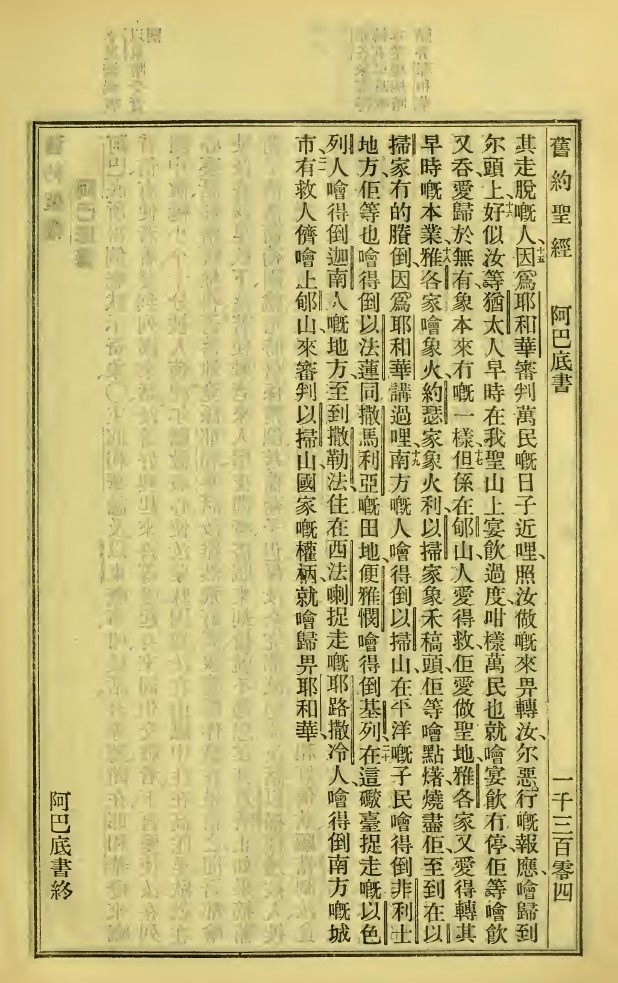 舊約聖經　阿巴底書　一千三百零四
其走脫嘅人、十五因爲耶和華審判萬民嘅日子近哩、照汝做嘅來畀轉汝、尔惡行嘅報應、噲歸到
尔頭上、十六好似汝等猶太人早時在我聖山上宴飲過度、咁樣萬民也就噲宴飲冇停、佢等噲飲
又吞、愛歸於無有、象本來冇嘅一樣、十七但係在郇山、人愛得救、佢愛做聖地、雅各家又愛得轉其
早時嘅本業、十八雅各家噲象火、約瑟家象火利、以掃家象禾稿頭、佢等噲點燒盡佢、至到在以
掃家冇的賸倒、因爲耶和華講過哩、十九南方嘅人噲得倒以掃山、在平洋嘅子民噲得倒非利士
地方、佢等也噲得倒以法蓮同撒馬利亞嘅田地、便雅憫噲得倒基列、二十在這礮臺捉走嘅以色
列人噲得倒迦南人嘅地方、至到撒勒法、住在西法喇捉走嘅耶路撒冷人、噲得倒南方嘅城
市、有救人儕噲上郇山來審判以掃山、國家嘅權柄、就噲歸畀耶和華、
阿巴底書終